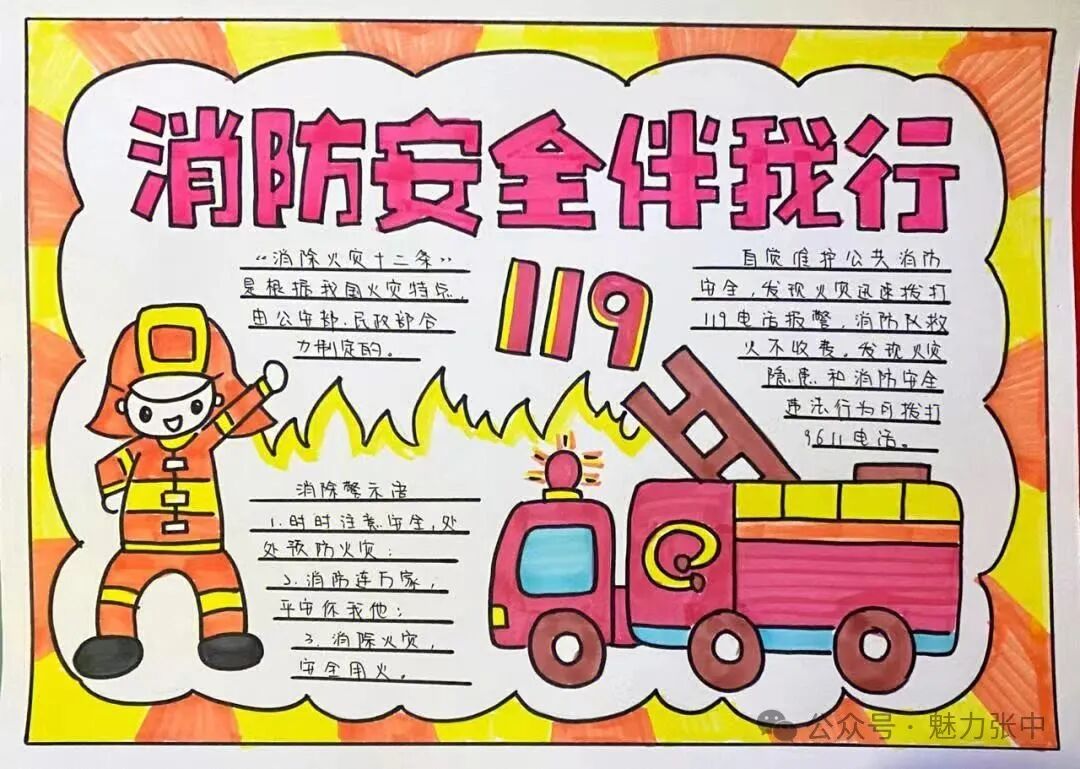 消防安全伴我行
“消除火灾十二条”
是根据我国火灾特点，
由公安部、民政部合
力制定的。
119
自觉维护公共消防
安全，发现火灾迅速拨打
119电话报警，消防队救
火不收费。发现火灾
隐患和消防安全
违法行为可拨打
9611电话。
消除警示语
1.时时注意安全，处
处预防火灾；
2.消防连万家，
平安你我他；
3.消除火灾，
安全用火。
公众号·魅力张中